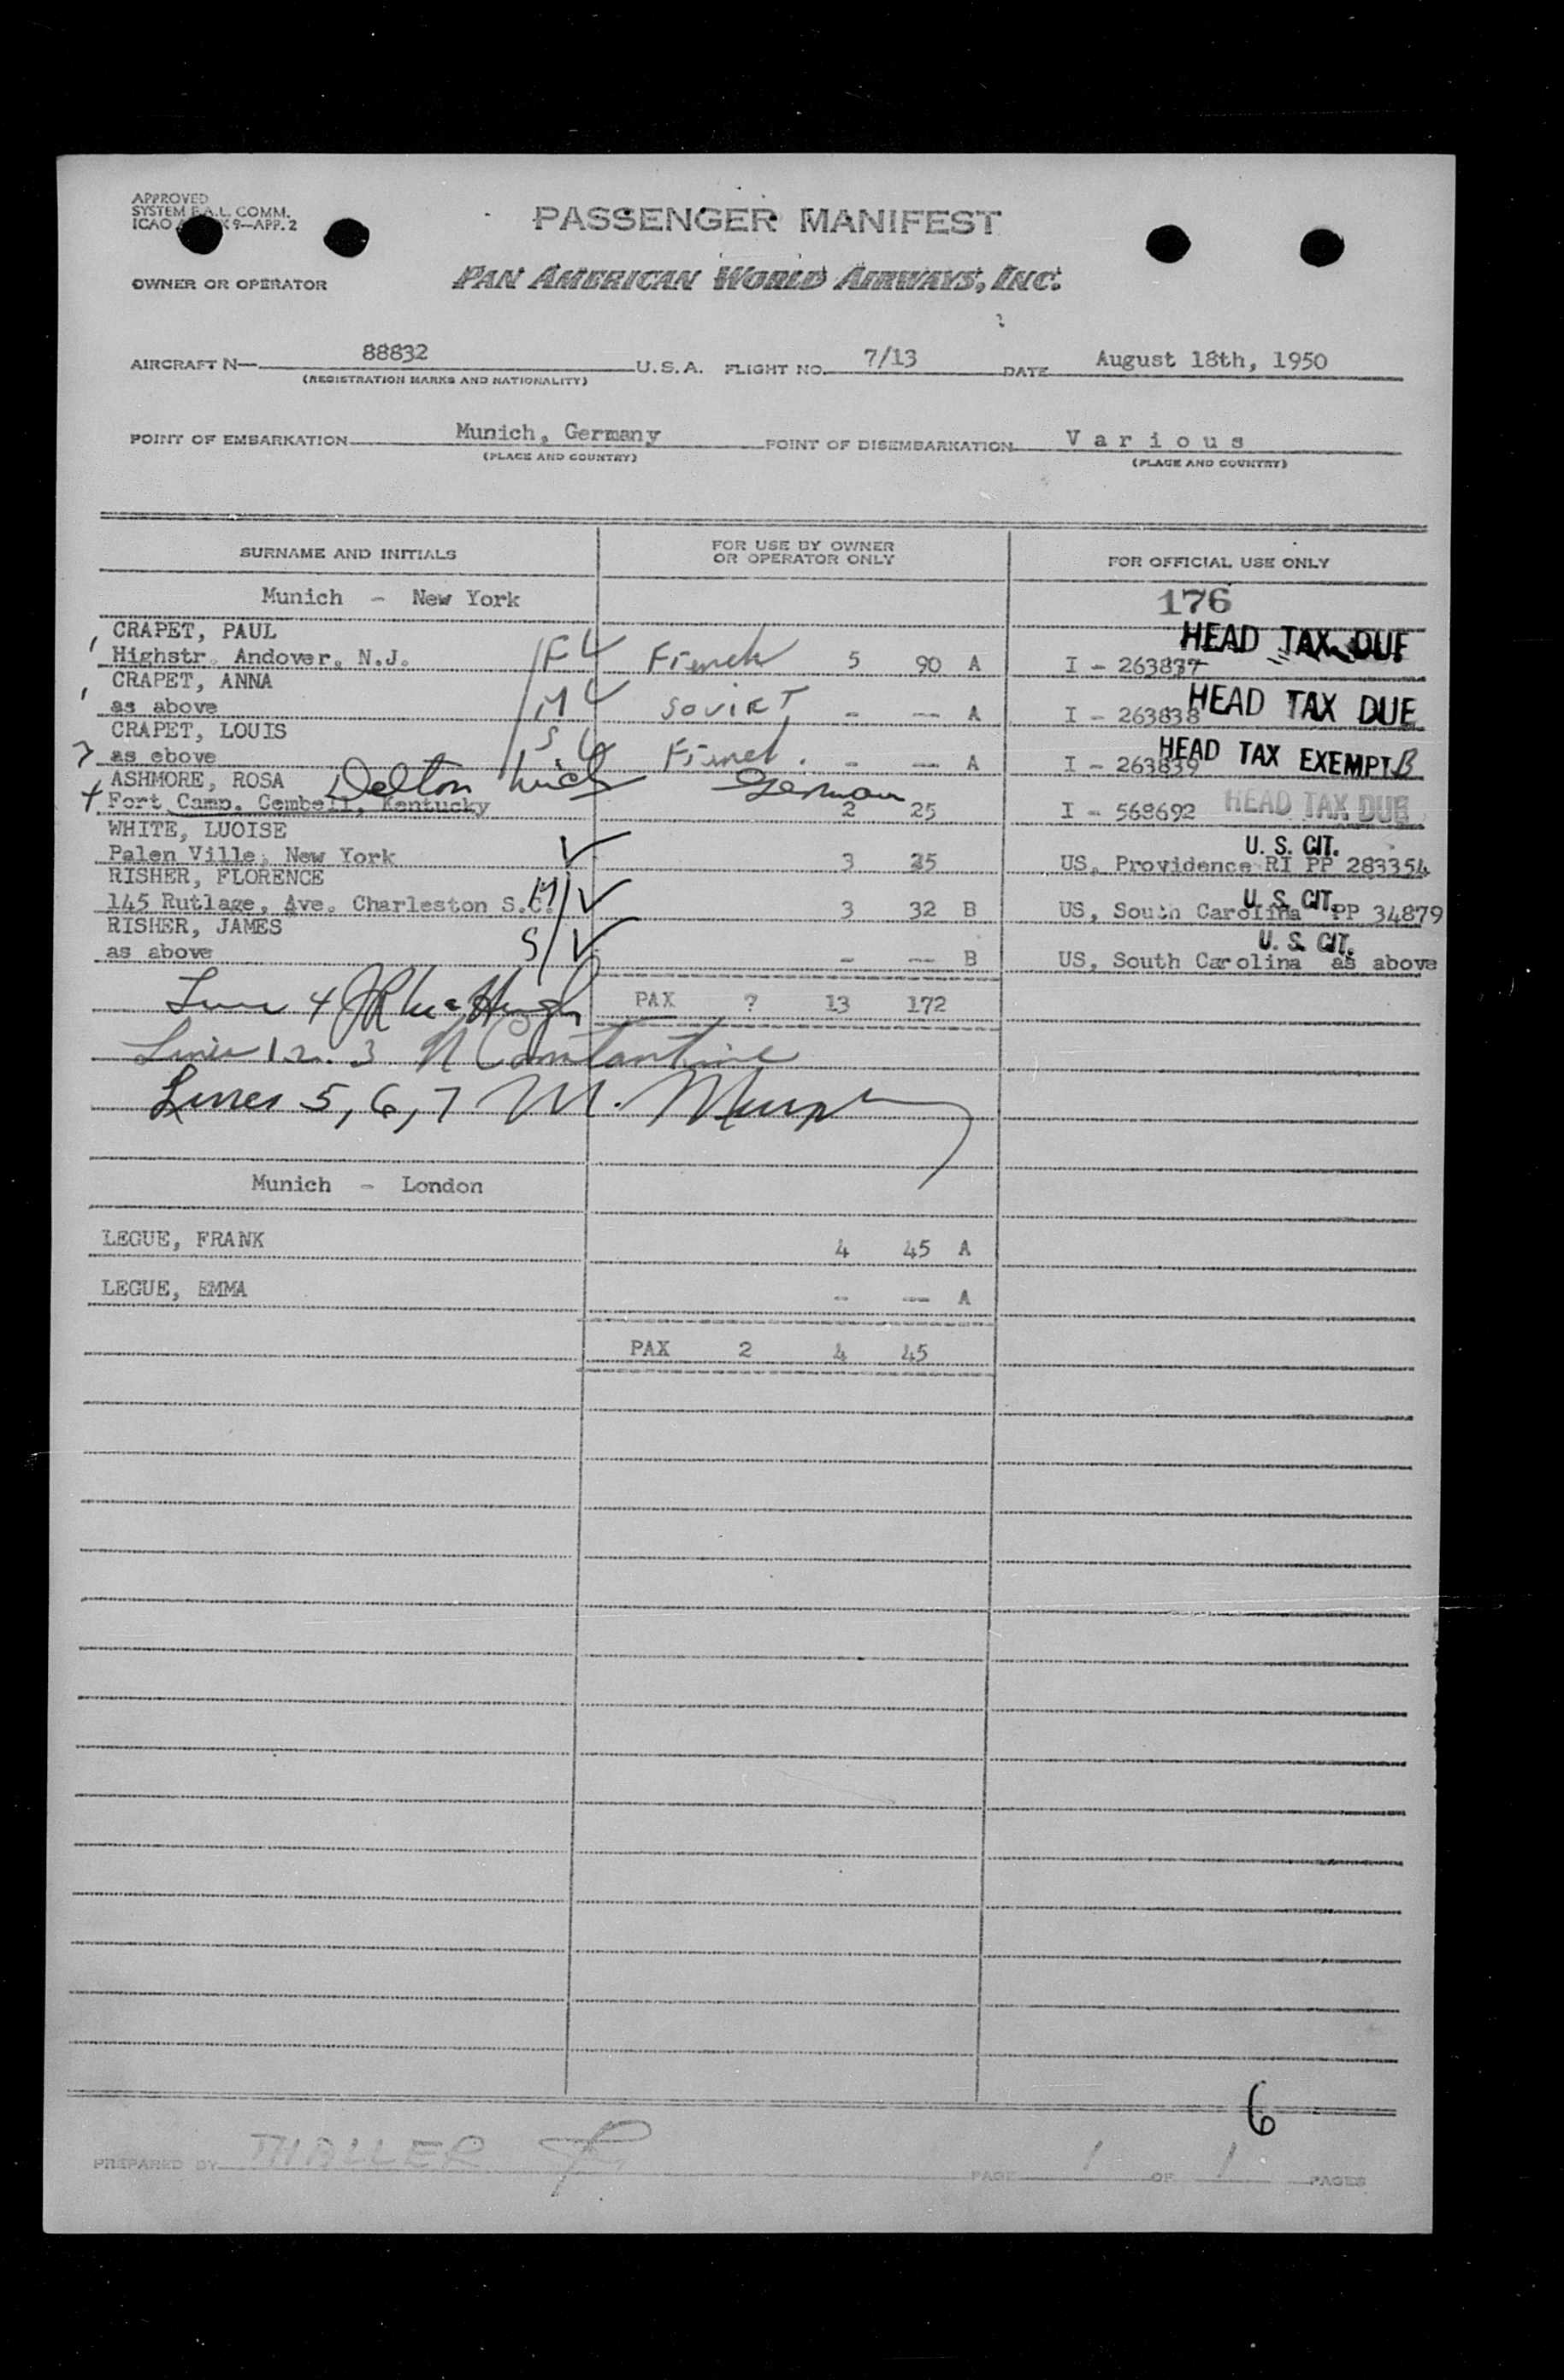 APPROVED
SYSTEM F.A.L. COMM.
ICAO X 9—APP. 2
PASSENGER MANIFEST
OWNER OR OPERATOR PAN AMERICAN WORLD AIRWAYS, INC.
AIRCRAFT N— 88832 U.S.A. FLIGHT NO. 7/13 DATE August 18th, 1950
(REGISTRATION MARKS AND NATIONALITY)
POINT OF EMBARKATION Munich, Germany POINT OF DISEMBARKATION V a r i o u s
(PLACE AND COUNTRY) (PLACE AND COUNTRY)
SURNAME AND INITIALS FOR USE BY OWNER OR OPERATOR ONLY FOR OFFICIAL USE ONLY
Munich - New York 176
CRAPET, PAUL HEAD TAX DUE
Highstr. Andover, N.J. F French 5 90 A I - 263837
CRAPET, ANNA HEAD TAX DUE
as above M SOVIET - -- A I - 263838
CRAPET, LOUIS HEAD TAX EXEMPT B
as ebove S French - -- A I - 263839
ASHMORE, ROSA Delton Mich German
Fort Camp. Cembell, Kentucky 2 25 I - 568692 HEAD TAX DUE
WHITE, LUOISE U. S. CIT.
Palen Ville, New York 3 25 US, Providence RI PP 283354
RISHER, FLORENCE U. S. CIT.
145 Rutlage, Ave. Charleston S.C. M 3 32 B US, South Carolina PP 34879
RISHER, JAMES U. S. CIT.
as above S - -- B US, South Carolina as above
Line 4 PAX 7 13 172
Lines 1 2. 3 N Constantine
Lines 5, 6, 7 M. Murphy
Munich - London
LEGUE, FRANK 4 45 A
LEGUE, EMMA - -- A
PAX 2 4 45
6
PREPARED BY THALLER PAGE 1 OF 1 PAGES